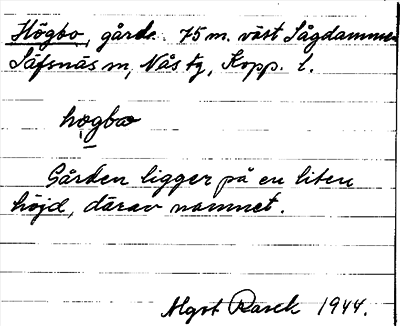 Högbo, gård. 75 m. väst Sågdammen
Säfsnäs m, Nås tg, Kopp. l.
högbo
Gården ligger på en liten
höjd, därav namnet.
Mgrt Rasck 1944.